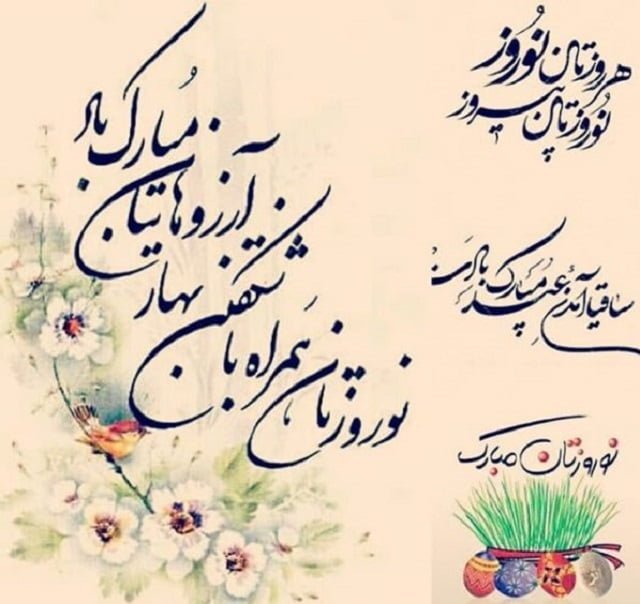 هر روزتان نوروز
نوروزتان پیروز
ساقیا آمدن عید مبارک بادت
نوروزتان مبارک
نوروزتان همراه با
شکفتن بهار
آرزوهایتان
مبارک باد